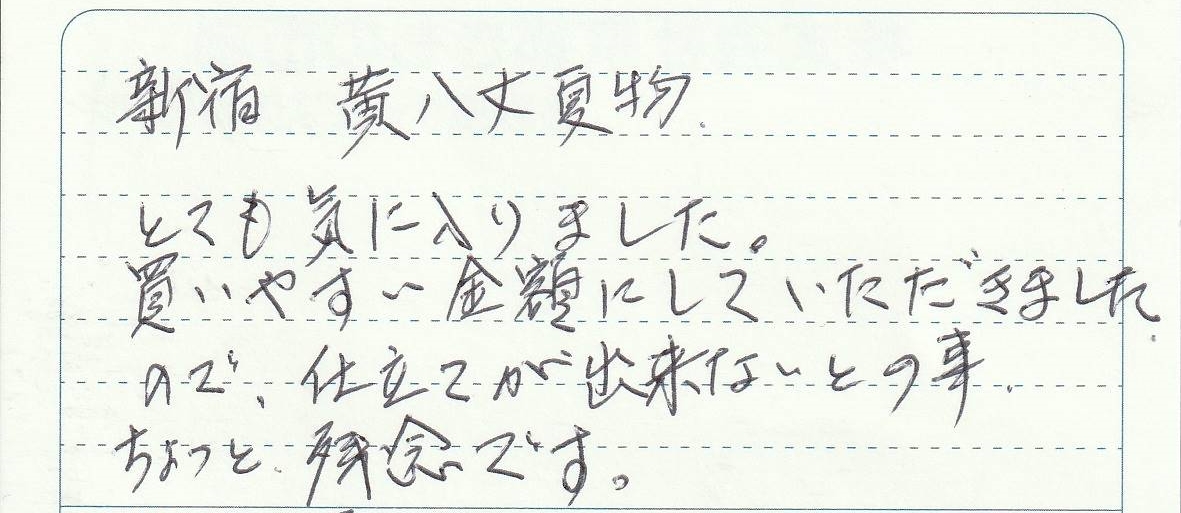 新宿　黄八丈夏物
とても気に入りました。
買いやすい金額にしていただきました
ので、仕立てが出来ないとの事、
ちょっと、残念です。